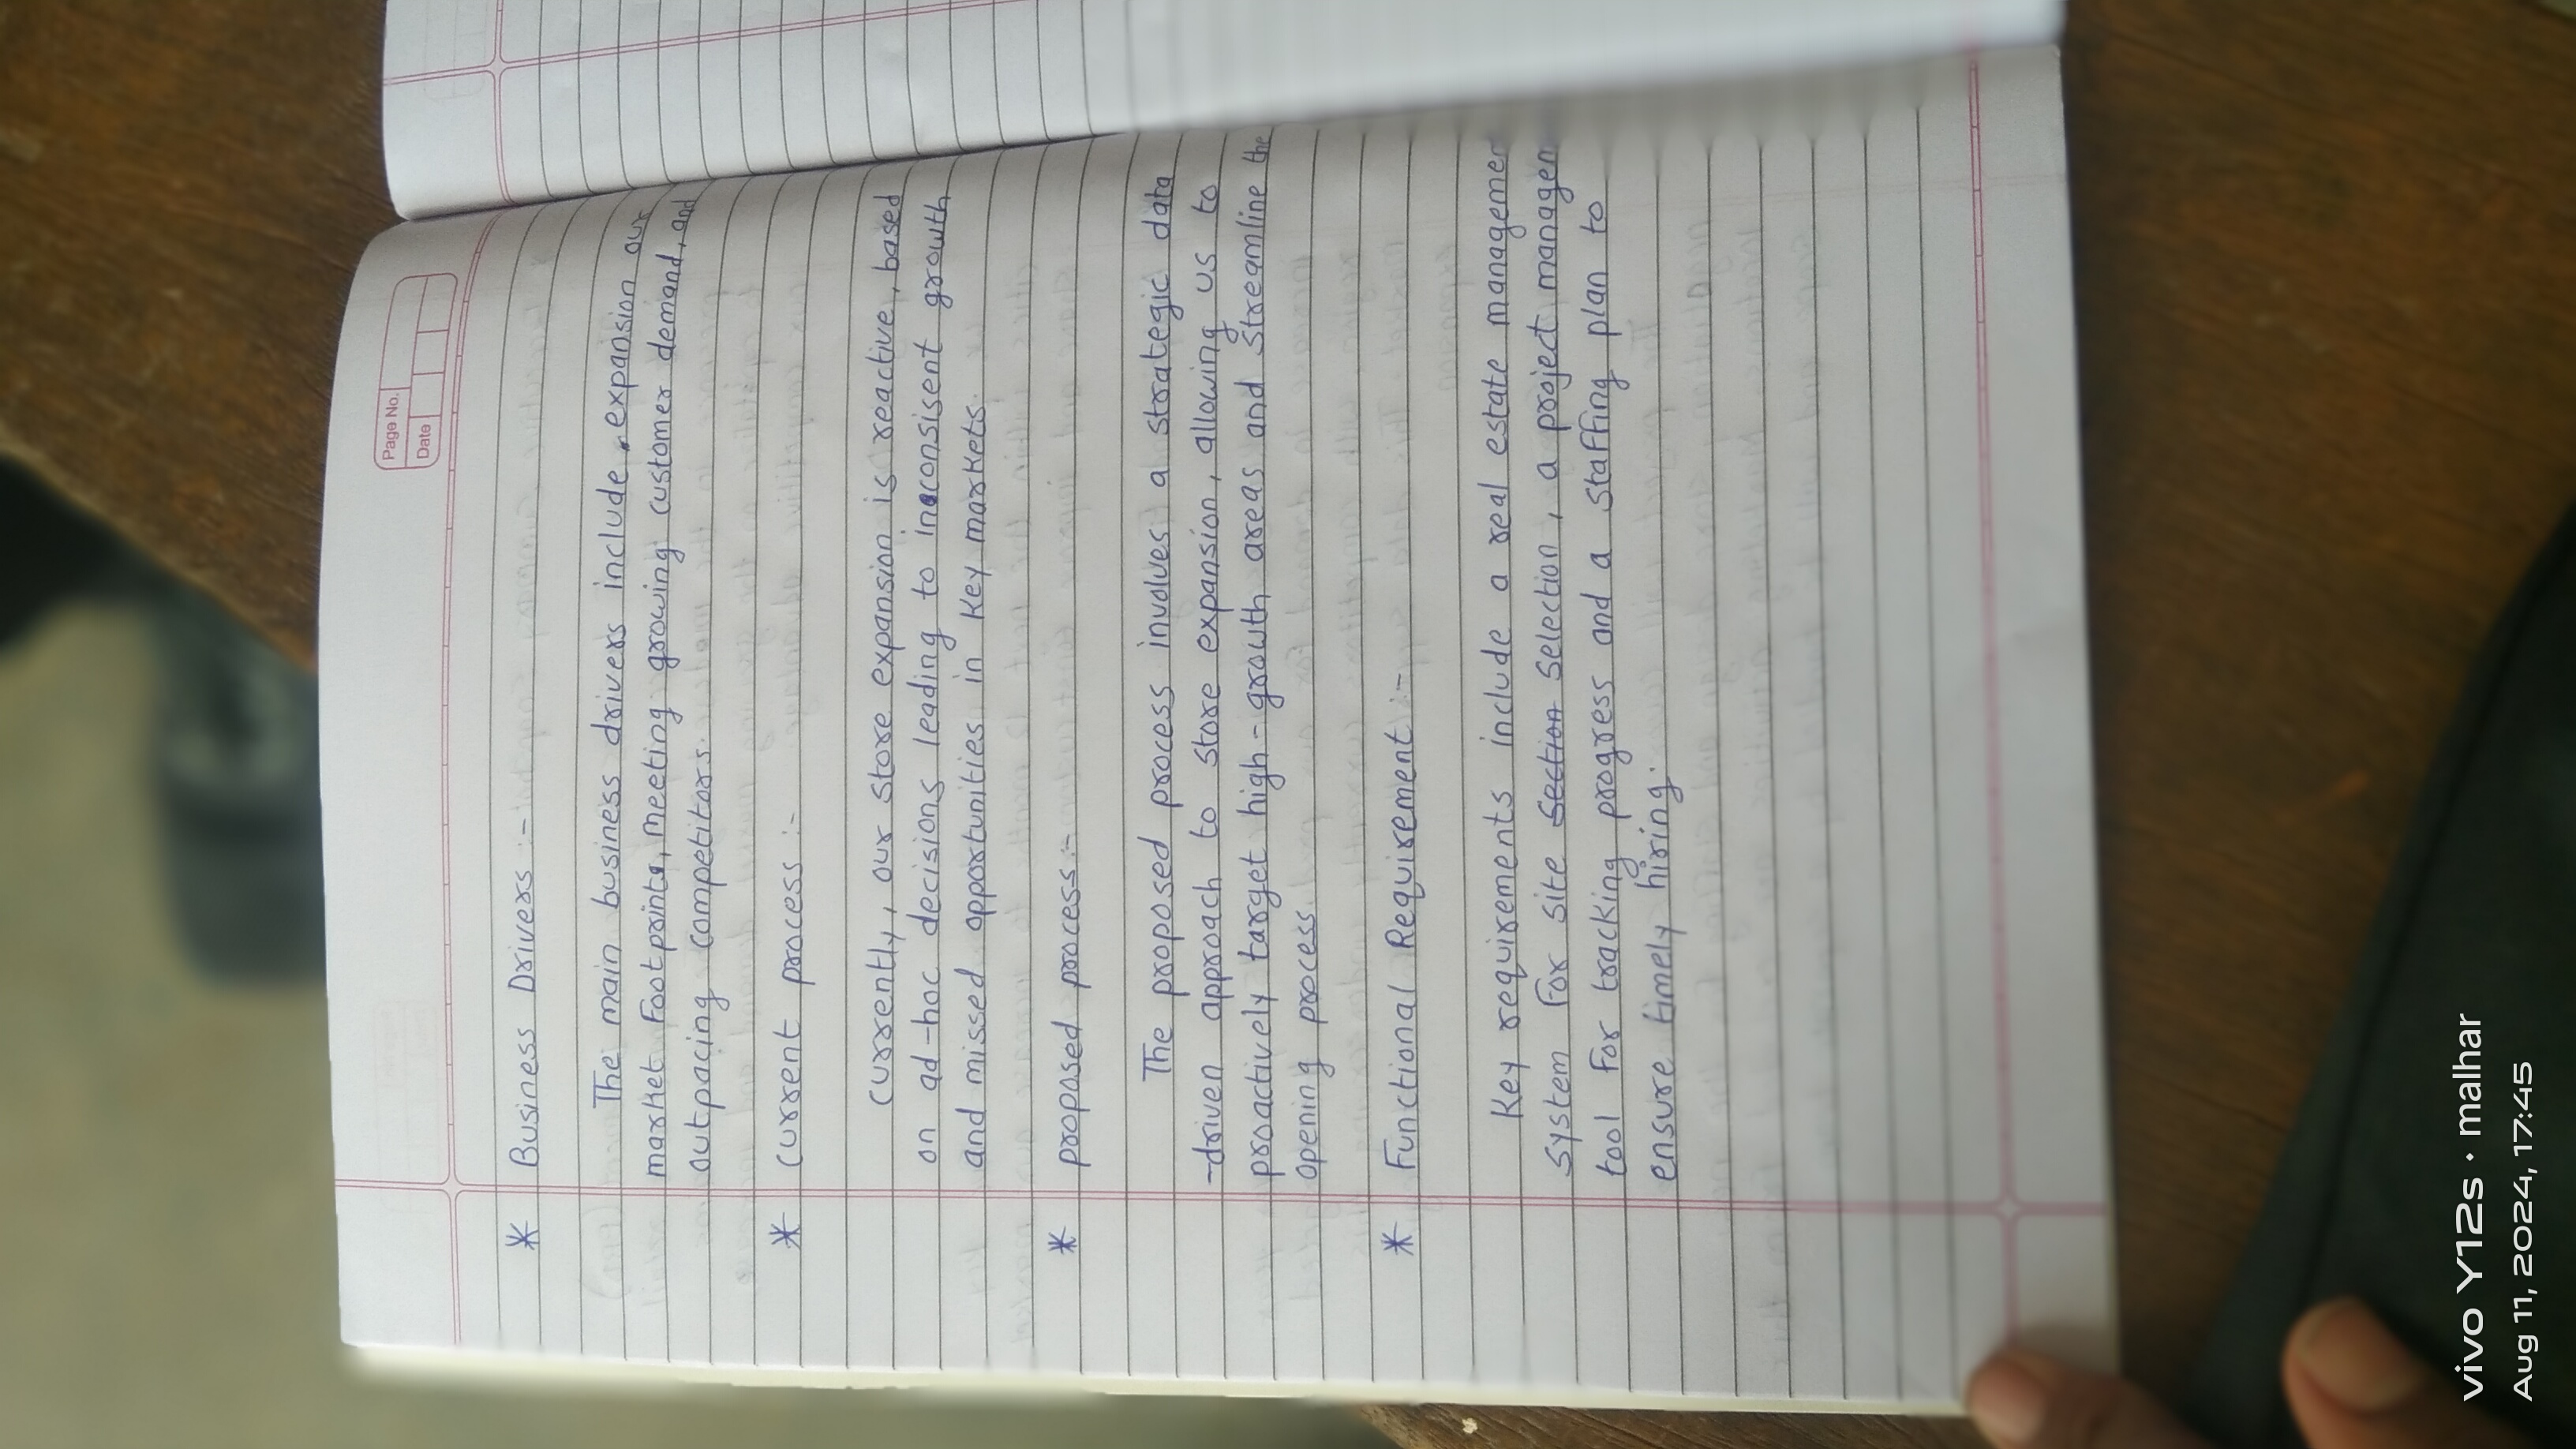 Page No.
Date
* Business Drivers :-
The main business drivers include expansion our
market Footprints, meeting growing customer demand, and
outpacing competitors.
* current process :-
currently, our store expansion is reactive, based
on ad-hoc decisions leading to inconsisent growth
and missed opportunities in key markets.
* proposed process:-
The proposed process involves a strategic data
-driven approach to store expansion, allowing us to
proactively target high-growth areas and streamline the
opening process.
* Functional Requirement :-
Key requirements include a real estate managemen
system for site Section Selection, a project managem
tool for tracking progress and a staffing plan to
ensure timely hiring.
vivo Y12s · malhar
Aug 11, 2024, 17:45